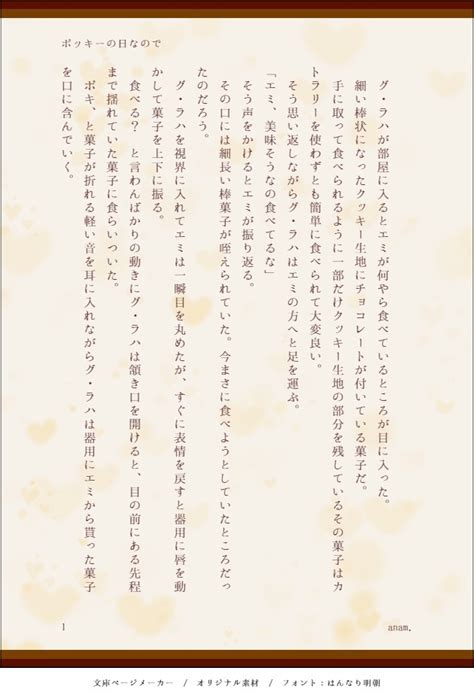 ポッキーの日なので
グ・ラハが部屋に入るとエミが何やら食べているところが目に入った。
細い棒状になったクッキー生地にチョコレートが付いている菓子だ。
手に取って食べられるように一部だけクッキー生地の部分を残しているその菓子はカ
トラリーを使わずとも簡単に食べられて大変良い。
そう思い返しながらグ・ラハはエミの方へと足を運ぶ。
「エミ、美味そうなの食べてるな」
そう声をかけるとエミが振り返る。
その口には細長い棒菓子が咥えられていた。今まさに食べようとしていたところだっ
たのだろう。
グ・ラハを視界に入れてエミは一瞬目を丸めたが、すぐに表情を戻すと器用に唇を動
かして菓子を上下に振る。
食べる？　と言わんばかりの動きにグ・ラハは頷き口を開けると、目の前にある先程
まで揺れていた菓子に食らいついた。
ポキ、と菓子が折れる軽い音を耳に入れながらグ・ラハは器用にエミから貰った菓子
を口に含んでいく。
1
anam.
文庫ページメーカー / オリジナル素材 / フォント：はんなり明朝